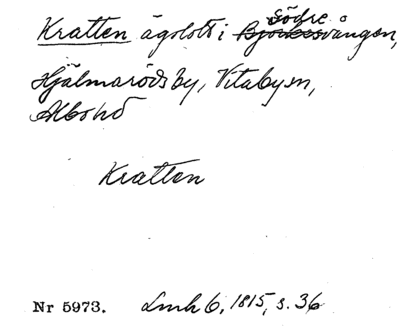 Kratten ägolott i Södre vången,
Hjälmaröds by, Vitaby sn,
Albo hd
Kratten
Nr 5973. Lmh 6, 1815, s. 36